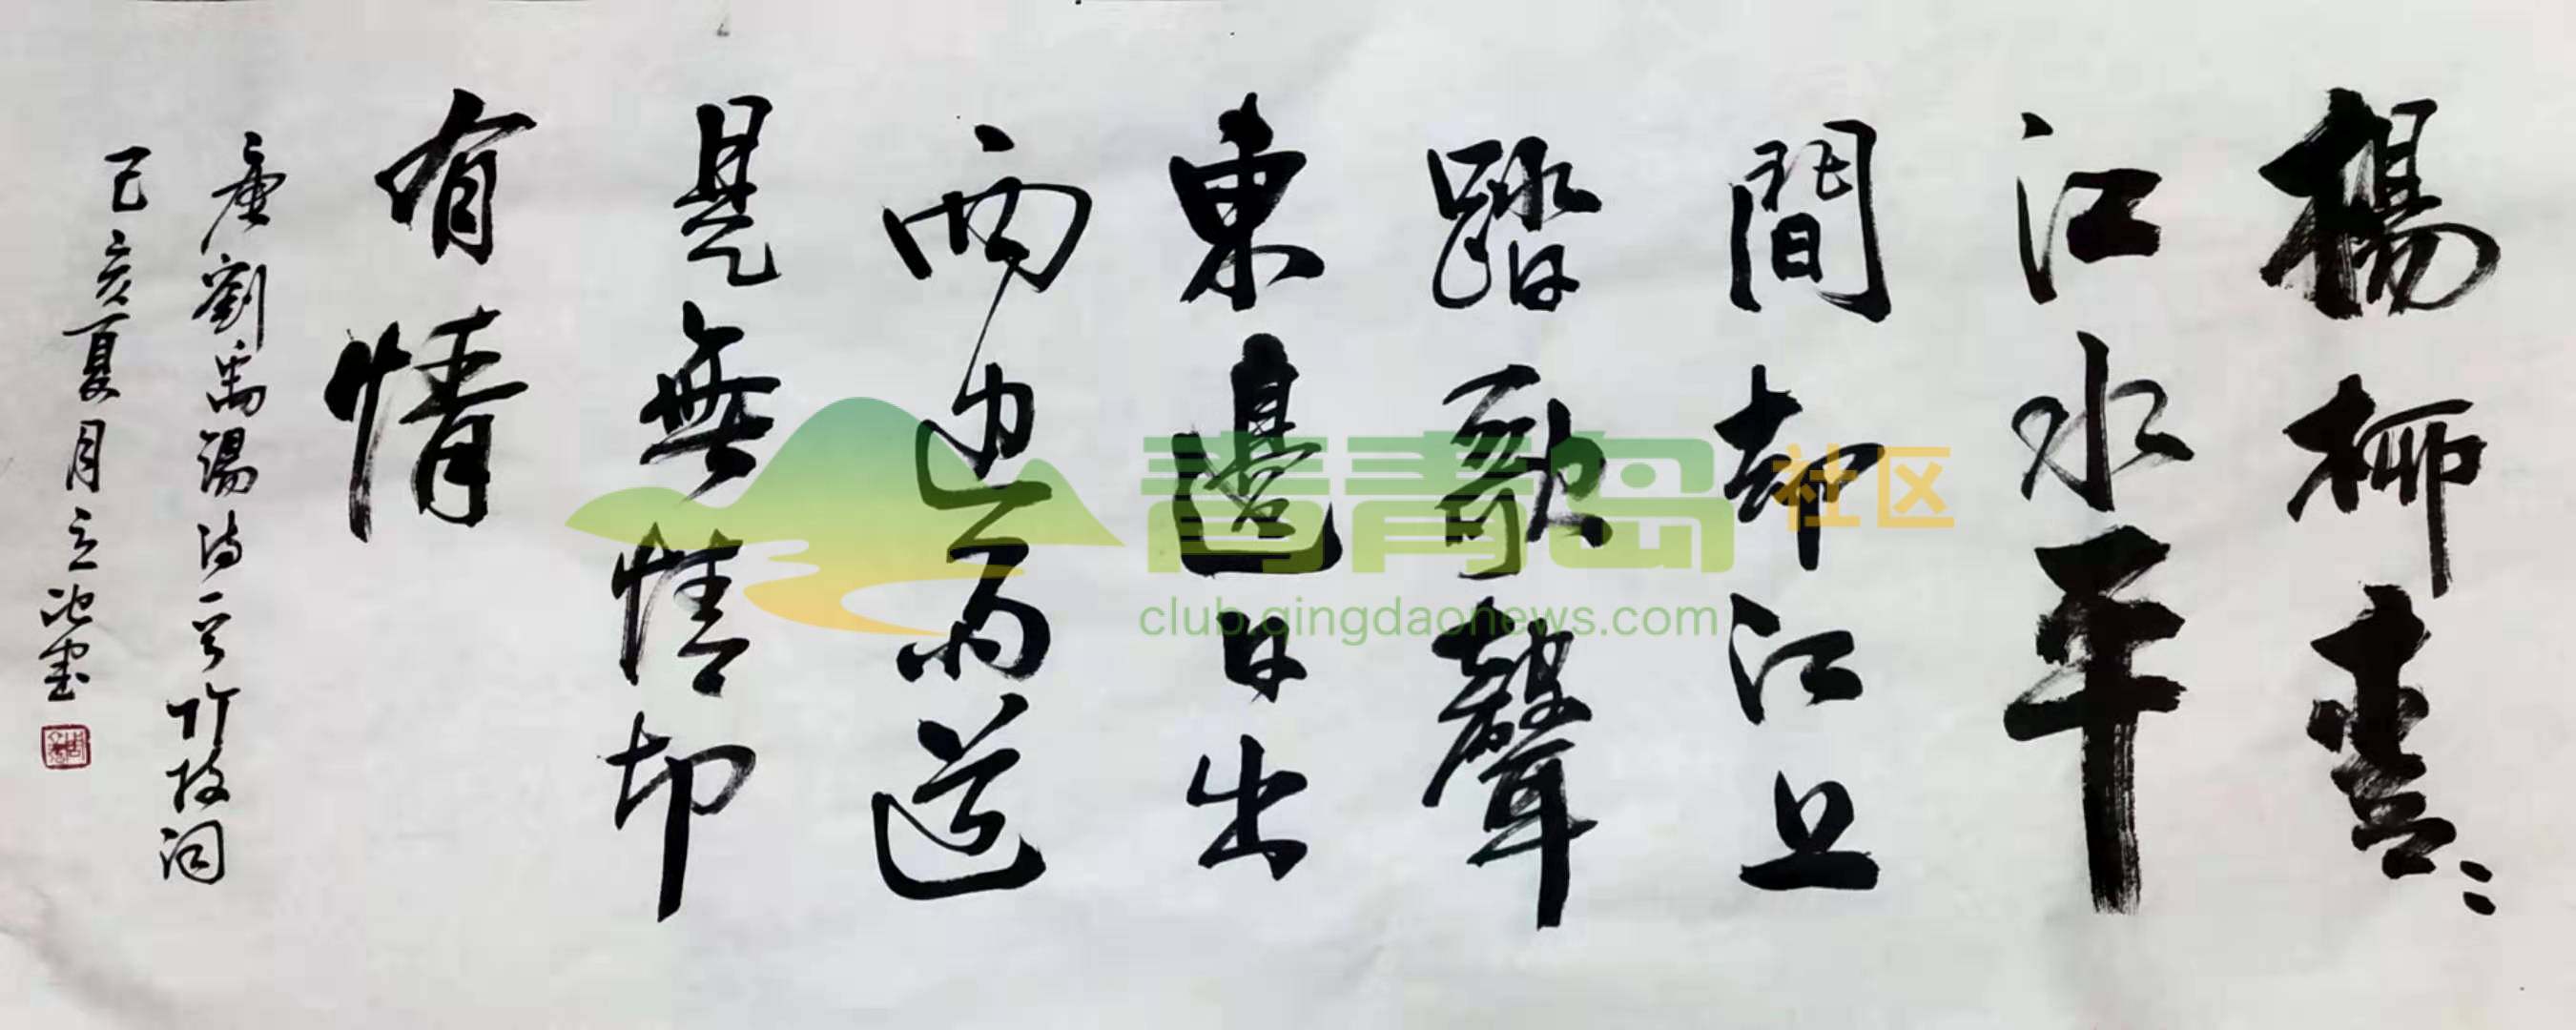 楊柳青〻
江水平
間却江上
踏歌聲
東邊日出
西邊雨道
是無情却
有情
唐劉禹錫詩一首竹枝詞
己亥夏月立池書
青青岛社区
club.qingdaonews.com